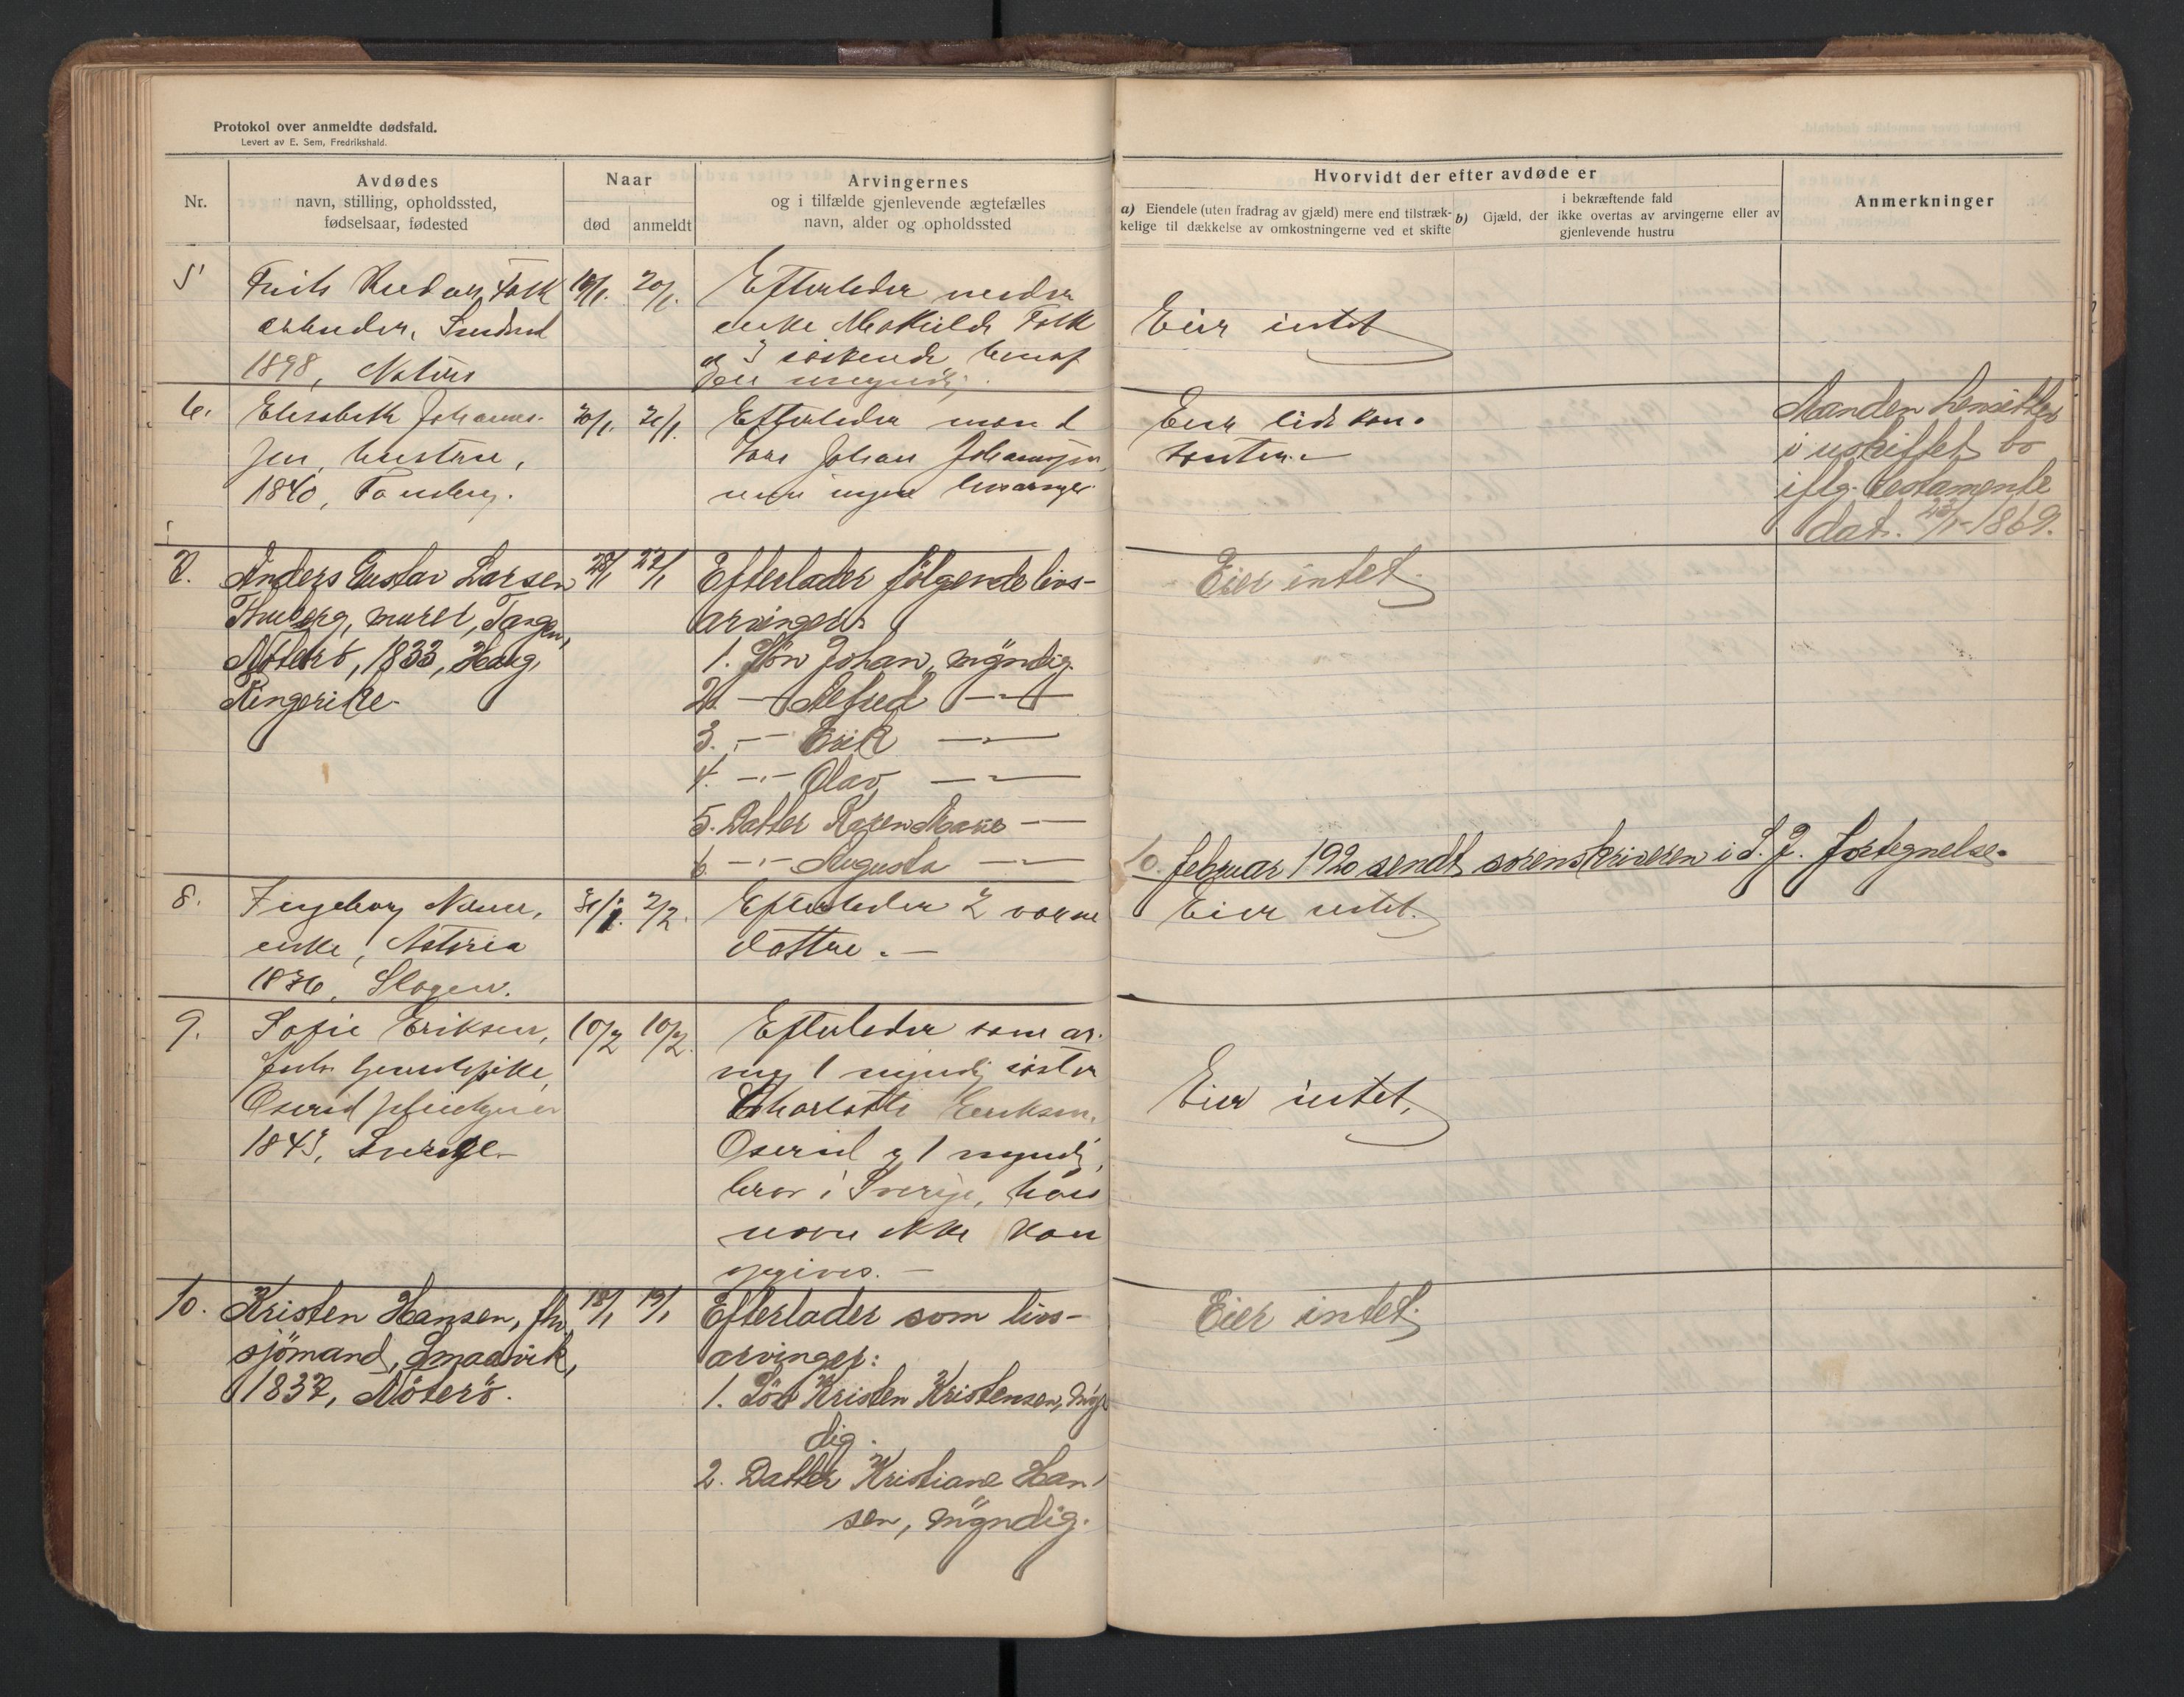 Protokol over anmeldte dødsfald.
Levert av E. Sem, Fredrikshald.
Nr.
Avdødes
navn, stilling, opholdssted,
fødselsaar, fødested
Naar
død
anmeldt
Arvingernes
og i tilfælde gjenlevende ægtefælles
navn, alder og opholdssted
Hvorvidt der efter avdøde er
a) Eiendele (uten fradrag av gjæld) mere end tilstræk-
kelige til dækkelse av omkostningerne ved et skifte
b) Gjæld, der
i bekræftende fald
ikke overtas av arvingerne eller av
gjenlevende hustru
Anmerkninger
5
Falk
arbeider,
1898,
20/1.
Efterlader
enke Mathilde Falk
3 søskende hvoraf
Eier intet
6.
Elisabeth Johanne-
sen, hustru,
1840,
30/1. 31/1.
Efterlader mand
Lars Johan Johannesen,
men ingen livsarving.
Eier lidt kon-
tanter.-
Manden hensitter
i uskiftet bo
iflg. testamente
dat. 1869.
7.
Anders Gustav Larsen
Thuberg, murer, Tangen,
Nøterø, 1833, Haug,
Ringerike.
27/1
Efterlader følgende livs-
arvinger:
1. Søn Johan, myndig.
2. -"- Alfred -"-
3. -"- Erik -"-
4. -"- Olav -"-
5. Datter Karen -"-
6. -"- Augusta -"-
Eier intet.
10. februar 1920 sendt sorenskriveren i S. J. fortegnelse.
8.
Ingeborg
enke,
1836, Slagen.
31/1. 2/2.
Efterlader 2 voksne
døttre.-
Eier intet.
9.
Sofie Eriksen,
1843, Sverige.-
10/2 10/2.
Efterlader som ar-
ving 1 myndig søster
Charlotte Eriksen,
Oserød og 1 myndig
bror i Sverige, hvis
navn ikke kan
opgives.-
Eier intet.
10.
Kristen Hansen, fhv.
sjömand, Smaavik,
1837, Nöterö.
18/1 19/1
Efterlader som livs-
arvinger:
1. Sön Kristen Kristensen, myn-
dig.
2. Datter Kristiane Han-
sen, myndig.
Eier intet.